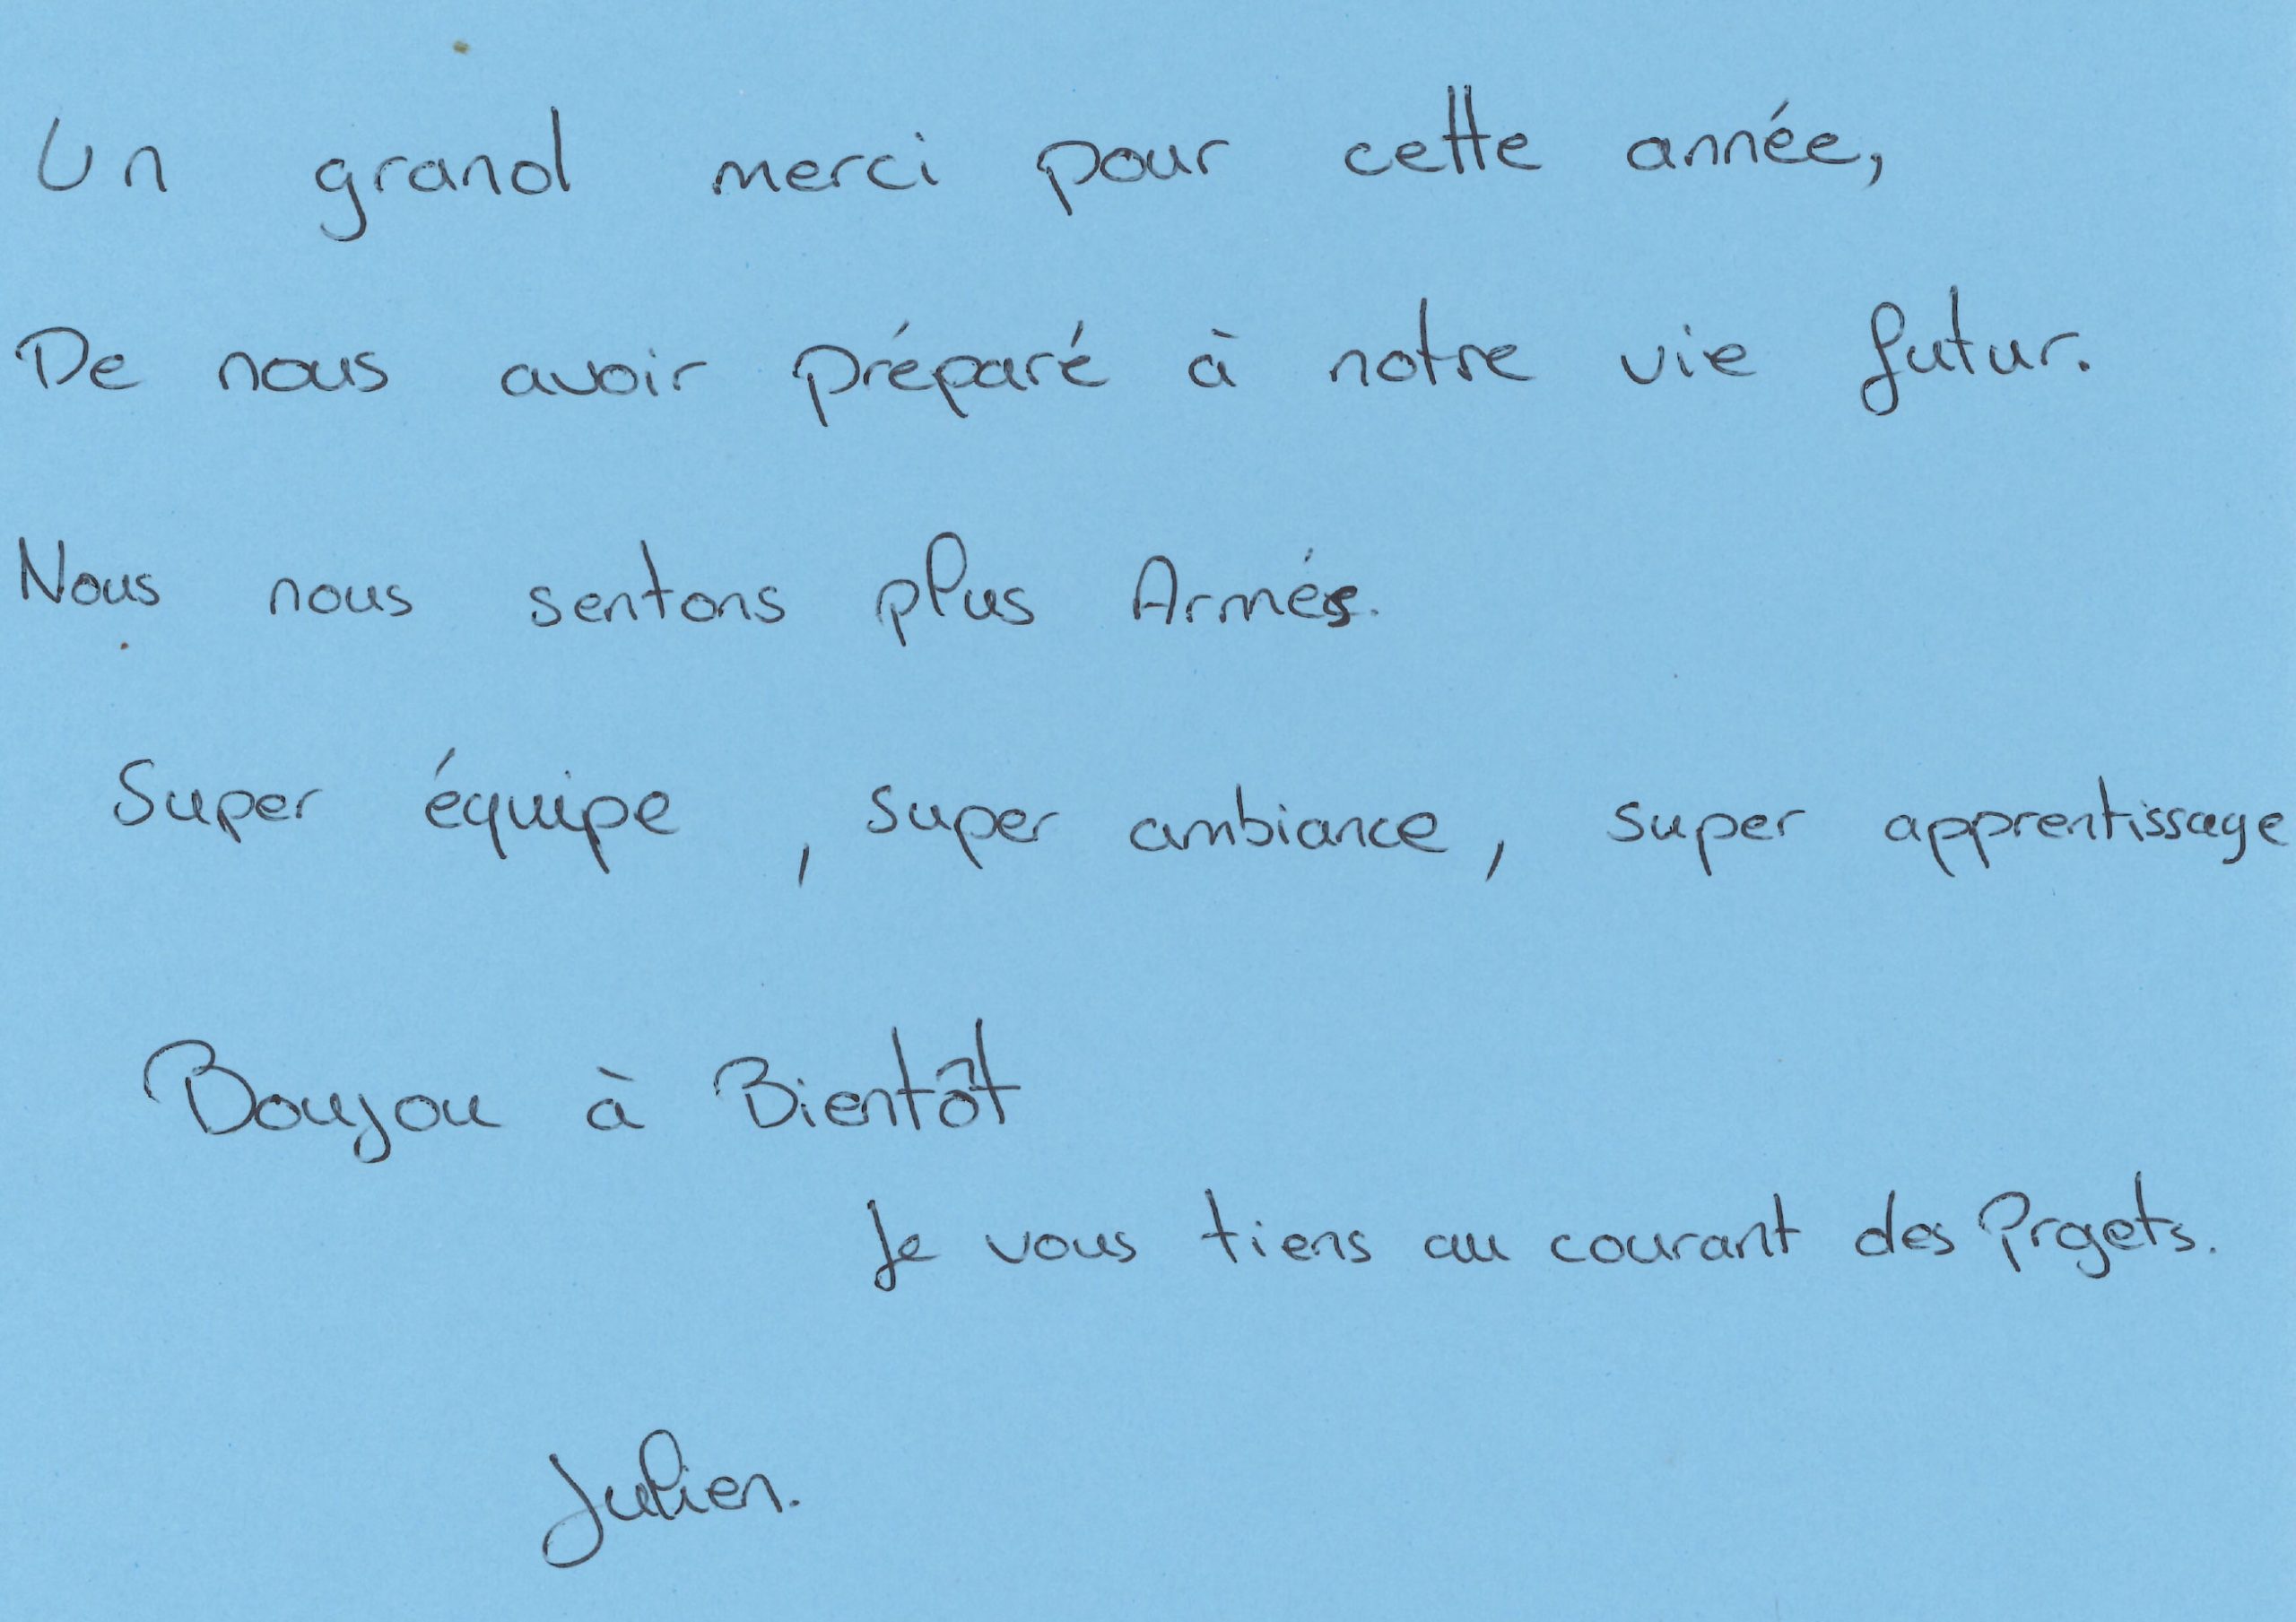 Un grand merci pour cette année,
De nous avoir préparé à notre vie futur.
Nous nous sentons plus Armés.
Super équipe, super ambiance, super apprentissage
Boujou à Bientôt
Je vous tiens au courant des Projets.
Julien.